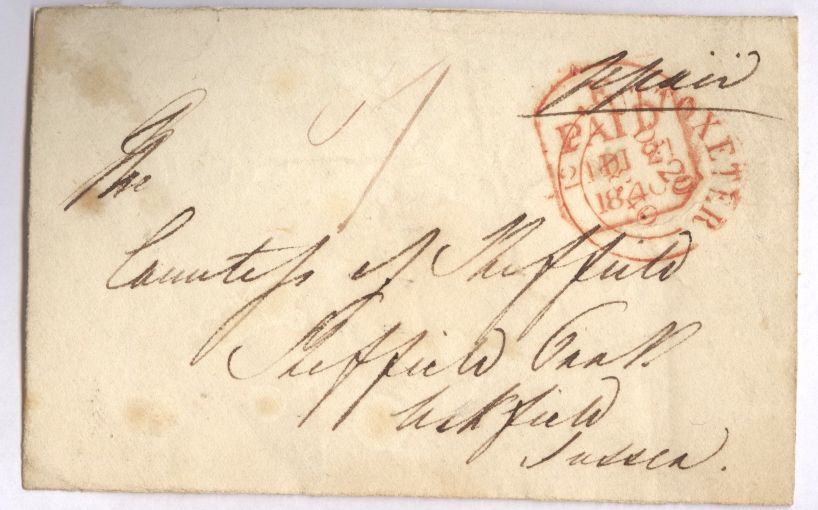 prepaid
PAID
EXETER
DE 20
1840
The
Countess of Sheffield
Sheffield Park
Uckfield
Sussex.